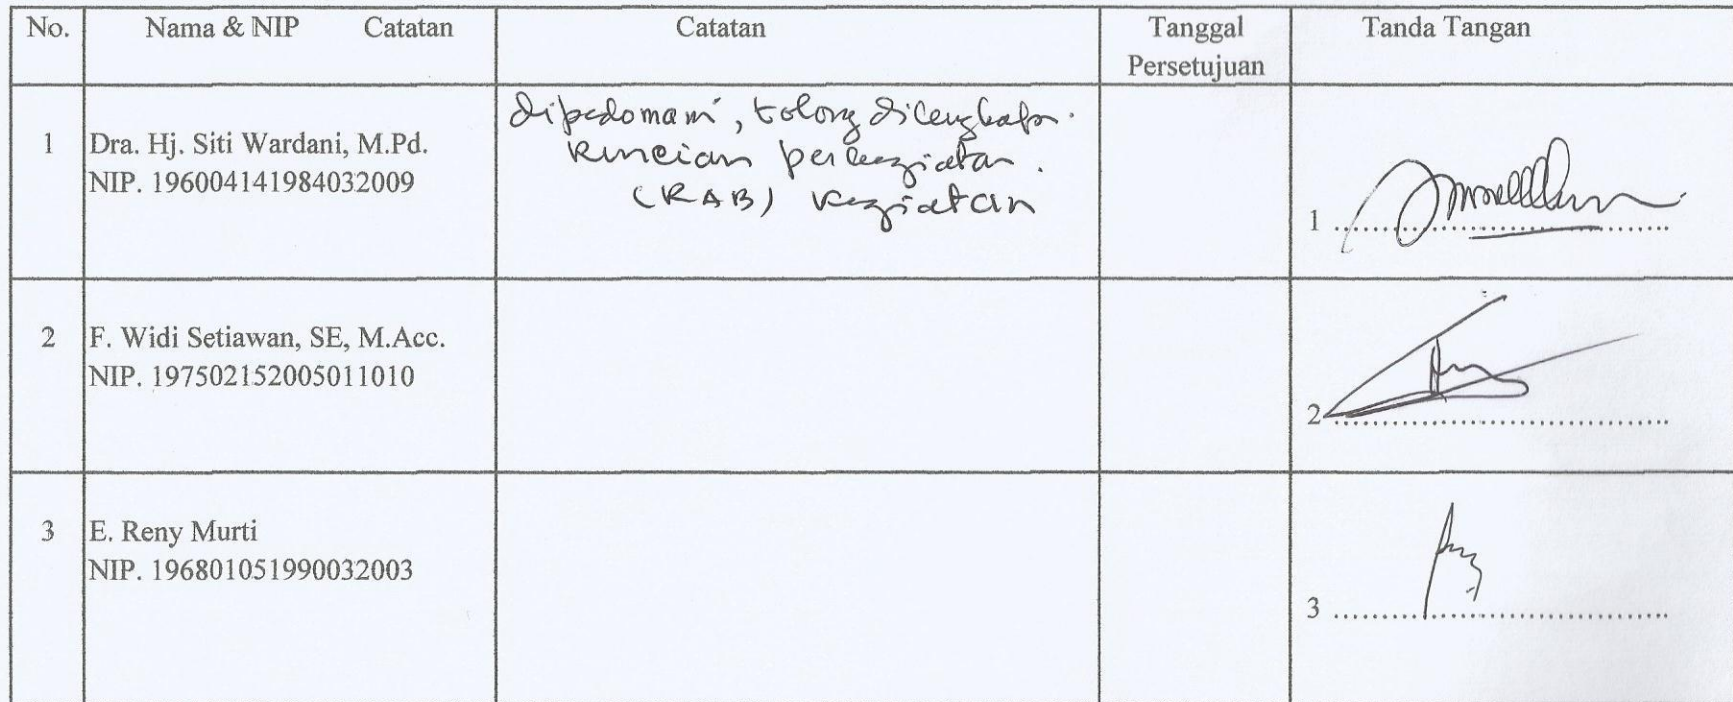 No. Nama & NIP Catatan Catatan Tanggal Persetujuan Tanda Tangan
1 Dra. Hj. Siti Wardani, M.Pd.
NIP. 196004141984032009
dipedomani, tolong dilengkapi.
Rincian perkegiatan.
(RAB) kegiatan
1 ....................................
2 F. Widi Setiawan, SE, M.Acc.
NIP. 197502152005011010
2 ....................................
3 E. Reny Murti
NIP. 196801051990032003
3 ....................................